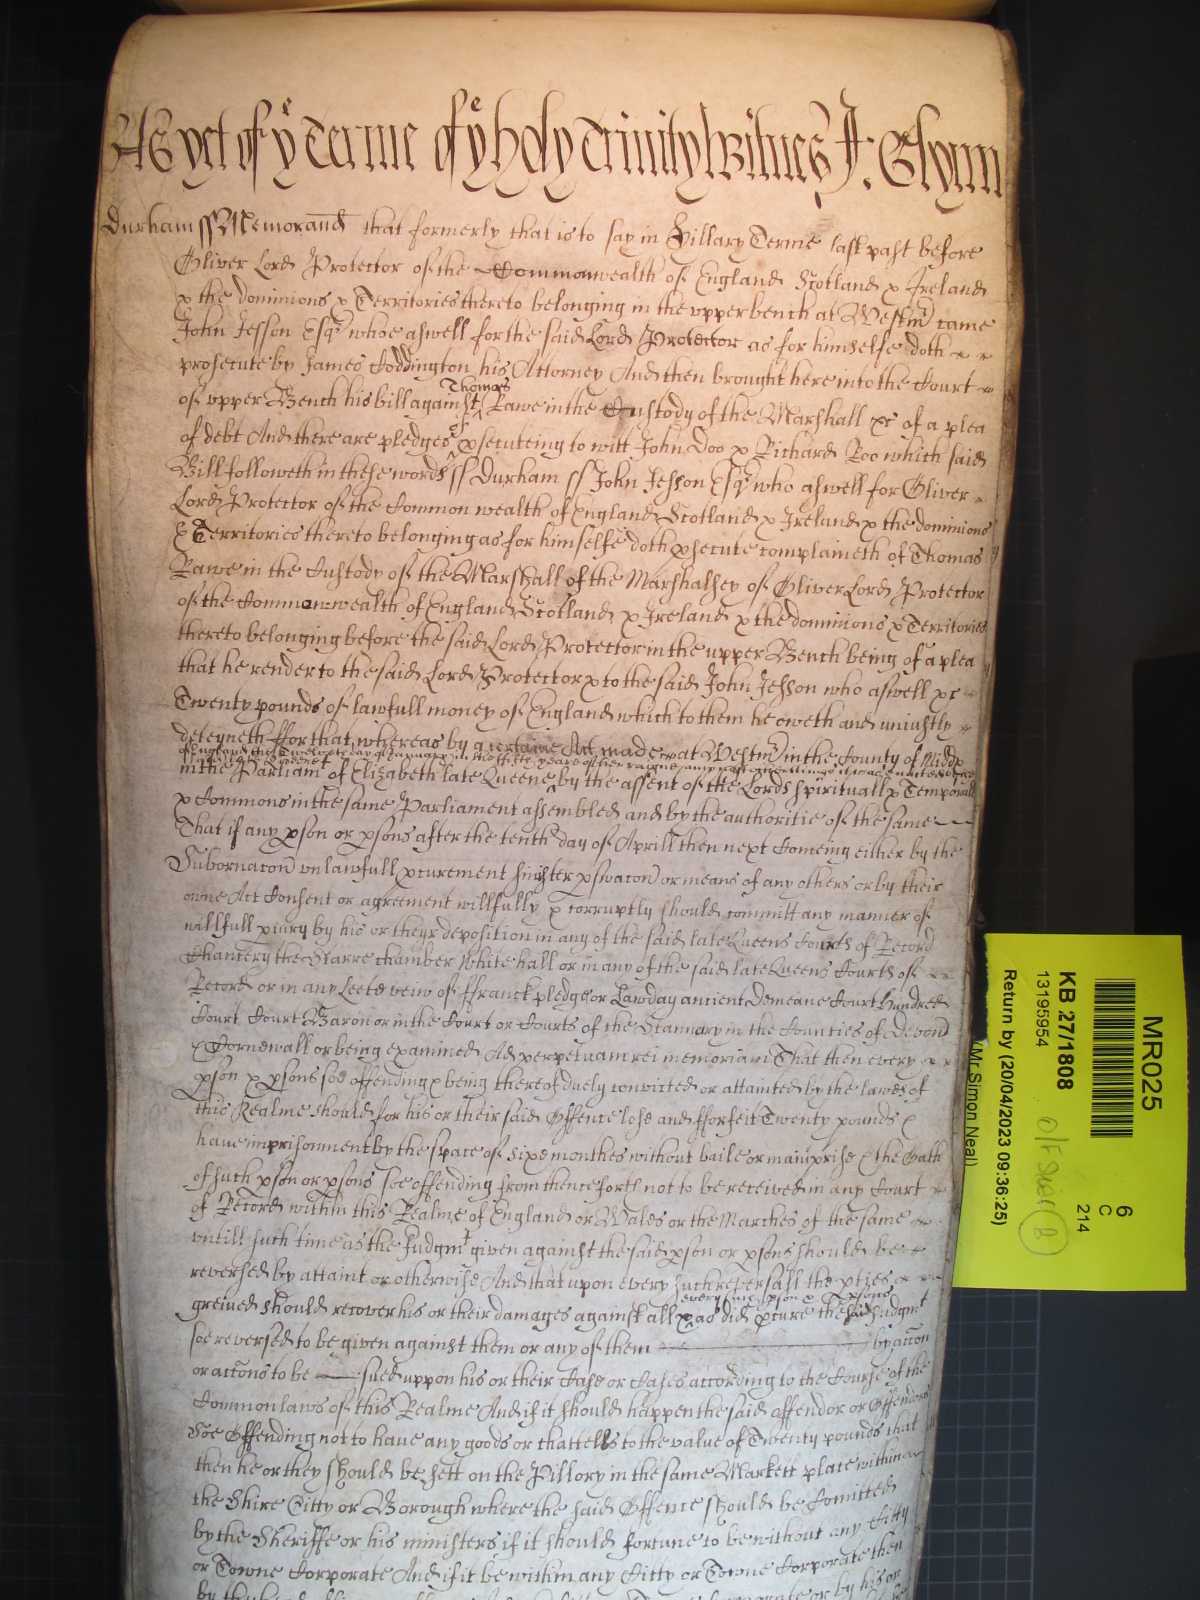 As yet of ye Terme of ye holy Trinity Witnes J: Glynn
Durham ss Memorand that formerly that is to say in Hillary Terme last past before
Oliver Lord Protector of the Commonwealth of England Scotland & Ireland
& the dominions & Territories thereto belonging in the upper bench at Westmr came
John Jesson Esqr whoe aswell for the said Lord Protector as for himselfe doth
prosecute by James Coddington his Attorney And then brought here into the Court
of upper Bench his bill against Thomas Rawe in the Custody of the Marshall &c of a plea
of debt And there are pledges of psecuteing to witt John Doo & Richard Roo which said
Bill followeth in these words ss Durham ss John Jesson Esqr who aswell for Oliver
Lord Protector of the Common wealth of England Scotland & Ireland & the dominions
& Territories thereto belonging as for himselfe doth psecute complaineth of Thomas
Rawe in the Custody of the Marshall of the Marshalsey of Oliver Lord Protector
of the Common-wealth of England Scotland & Ireland & the dominions & Territories
thereto belonging before the said Lord Protector in the upper Bench being of a plea
that he render to the said Lord Protector & to the said John Jesson who aswell &c
Twenty pounds of lawfull money of England which to them he oweth and uniustly
deteyneth ffor that whereas by a certaine Act made at Westmr in the County of Midd
of England the Twelveth day of January in the fifth yeare of her raigne amongst other things it was enacted
in the Parliamt of Elizabeth late Queene by the assent of the Lords spirituall & Temporall
& Commons in the same Parliament assembled and by the authoritie of the same
That if any pson or psons after the tenth day of Aprill then next Comeing either by the
Subornacon unlawfull pcurement sinister pswacon or means of any others or by their
owne Act Consent or agreement willfully & corruptly should committ any manner of
willfull piury by his or theyr deposition in any of the said late Queens Courts of Record
Chancery the Starre chamber White hall or in any of the said late Queens Courts of
Record or in any Leete veiw of ffranck pledge or Lawday ancient Demeane Court hundred
Court Court Baron or in the Court or Courts of the Stannary in the Counties of Devon
& Cornewall or being examined Ad perpetuam rei memoriam That then every
pson & psons soe offending & being thereof duely convicted or attainted by the lawes of
this Realme should for his or their said Offence lose and fforfeit Twenty pounds &
have imprisonment by the space of sixe monthes without baile or mainprise & the Oath
of such pson or psons soe offending from thenceforth not to be received in any Court
of Record within this Realme of England or Wales or the Marches of the same
untill such time as the Judgmt given against the said pson or psons should be
reversed by attaint or otherwise And that upon every such reversall the pties
greived should recover his or their damages against all & every such pson & psons as did pcure the said Judgmt
soe reversed to be given against them or any of them by accon
or accons to be sued uppon his or their Case or Cases according to the Course of the
Common laws of this Realme And if it should happen the said offendor or Offendors
soe Offending not to have any goods or chattells to the value of Twenty pounds that
then he or they should be sett on the Pillory in the same Markett place within
the Shire Citty or Borough where the said Offence should be Comitted
by the Sheriffe or his ministers if it should fortune to be without any Citty
or Towne Corporate And if it be within any Citty or Towne Corporate then
MR025
6
C
214
KB 27/1808
13195954
Return by (20/04/2023 09:36:25)
(Mr Simon Neal)